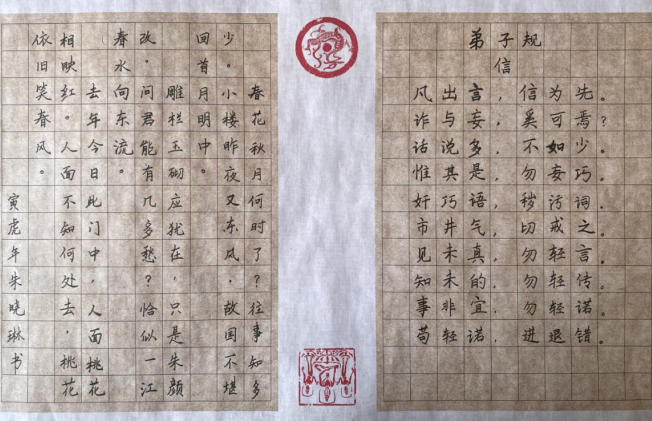 弟子规
信
风出言，信为先。
诈与妄，奚可焉？
话说多，不如少。
惟其是，勿妄巧。
奸巧语，秽污词。
市井气，切戒之。
见未真，勿轻言。
知未的，勿轻传。
事非宜，勿轻诺。
苟轻诺，进退错。
春花秋月何时了？往事知多
少。小楼昨夜又东风，故国不堪
回首月明中。
雕栏玉砌应犹在，只是朱颜
改。问君能有几多愁？恰似一江
春水向东流。
去年今日此门中，人面桃花
相映红。人面不知何处去，桃花
依旧笑春风。
寅虎年朱晓琳书